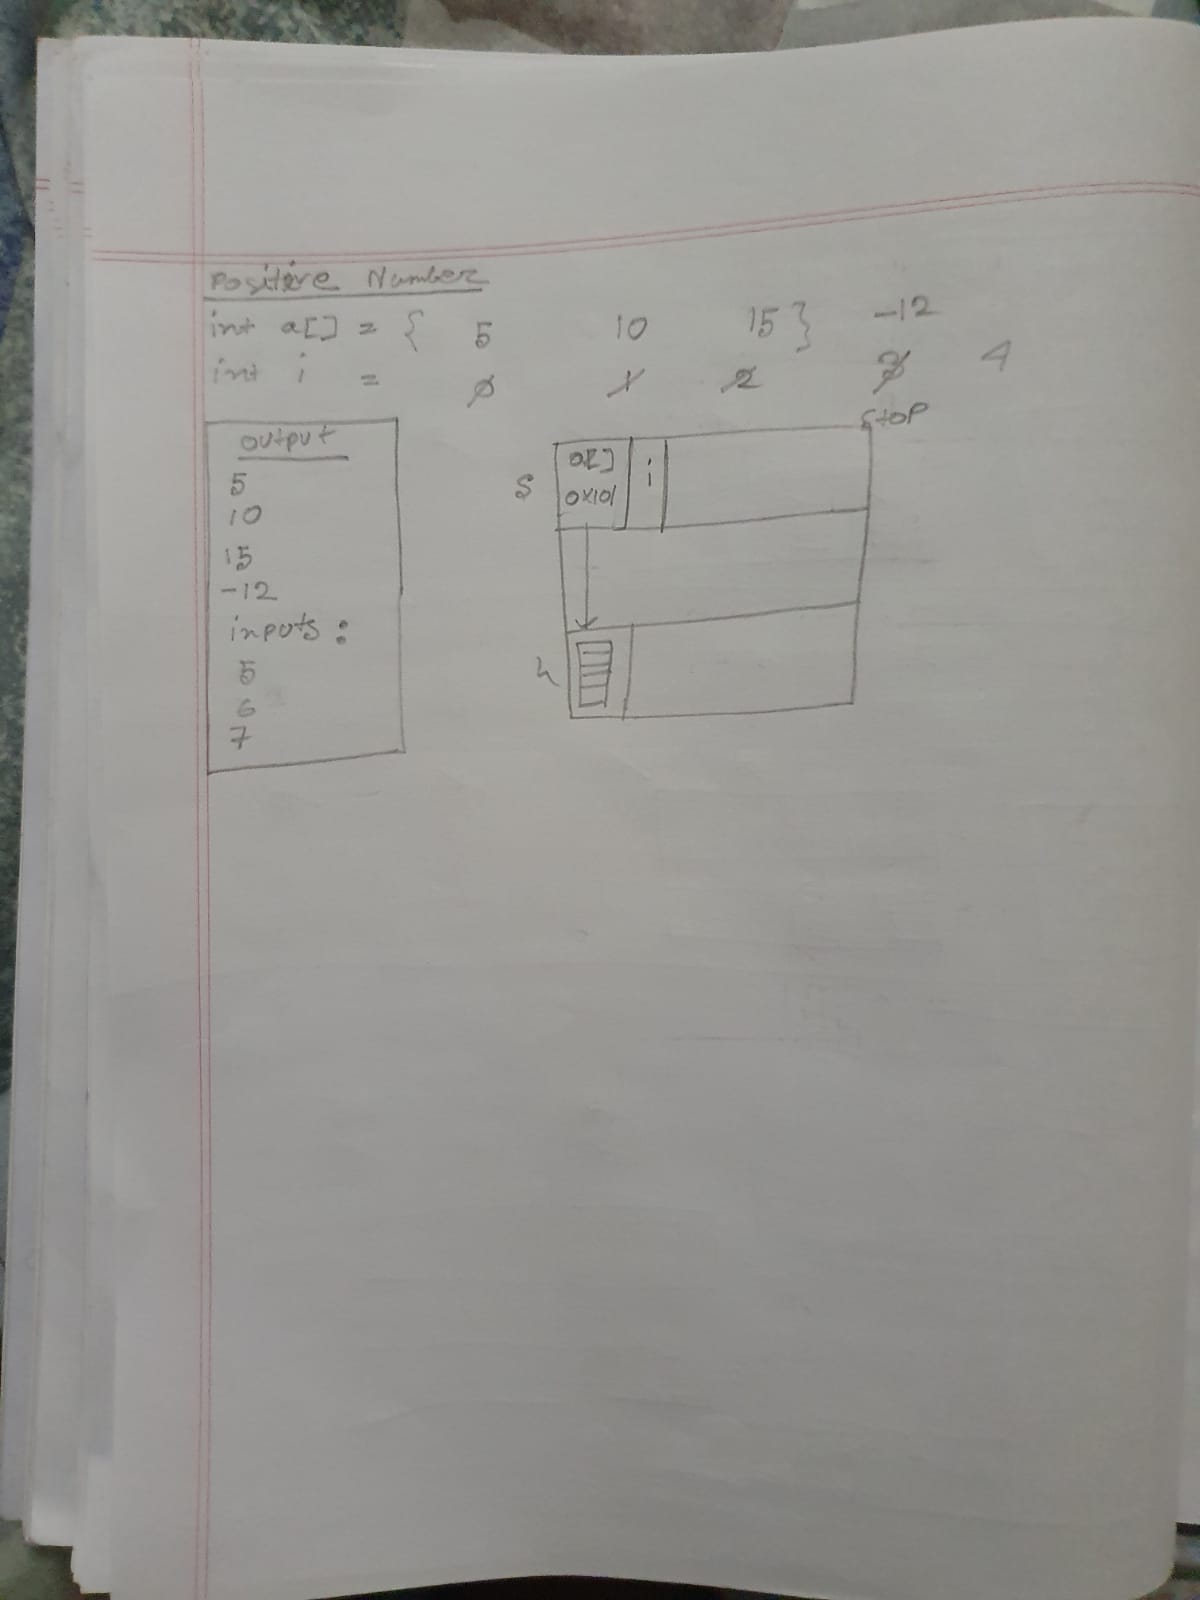 Positive Number
int a[] = { 5 10 15 } -12
int i = 0 1 2 3 4
STOP
output
5
10
15
-12
inputs :
5
6
7
S
a[] i
0x101
h